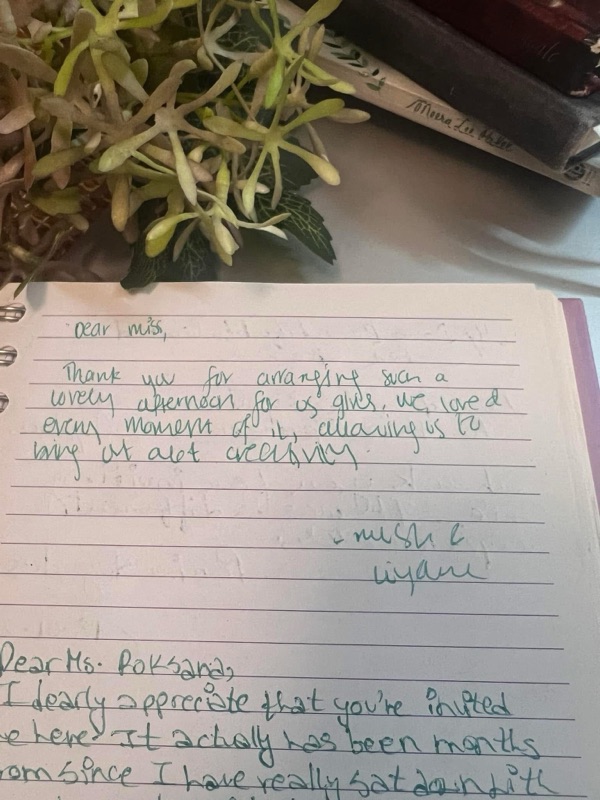 Dear miss,
Thank you for arranging such a
lovely afternoon for us girls, we loved
every moment of it, allowing us to
bring out alot creativity.
- mish &
Dear Ms. Roksana,
I dearly appreciate that you're invited
e here. It actually has been months
rom since I have really sat down with